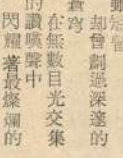 却曾劃過深邃的
蒼穹
在無數目光交集
的讚嘆聲中
閃耀著最燦爛的